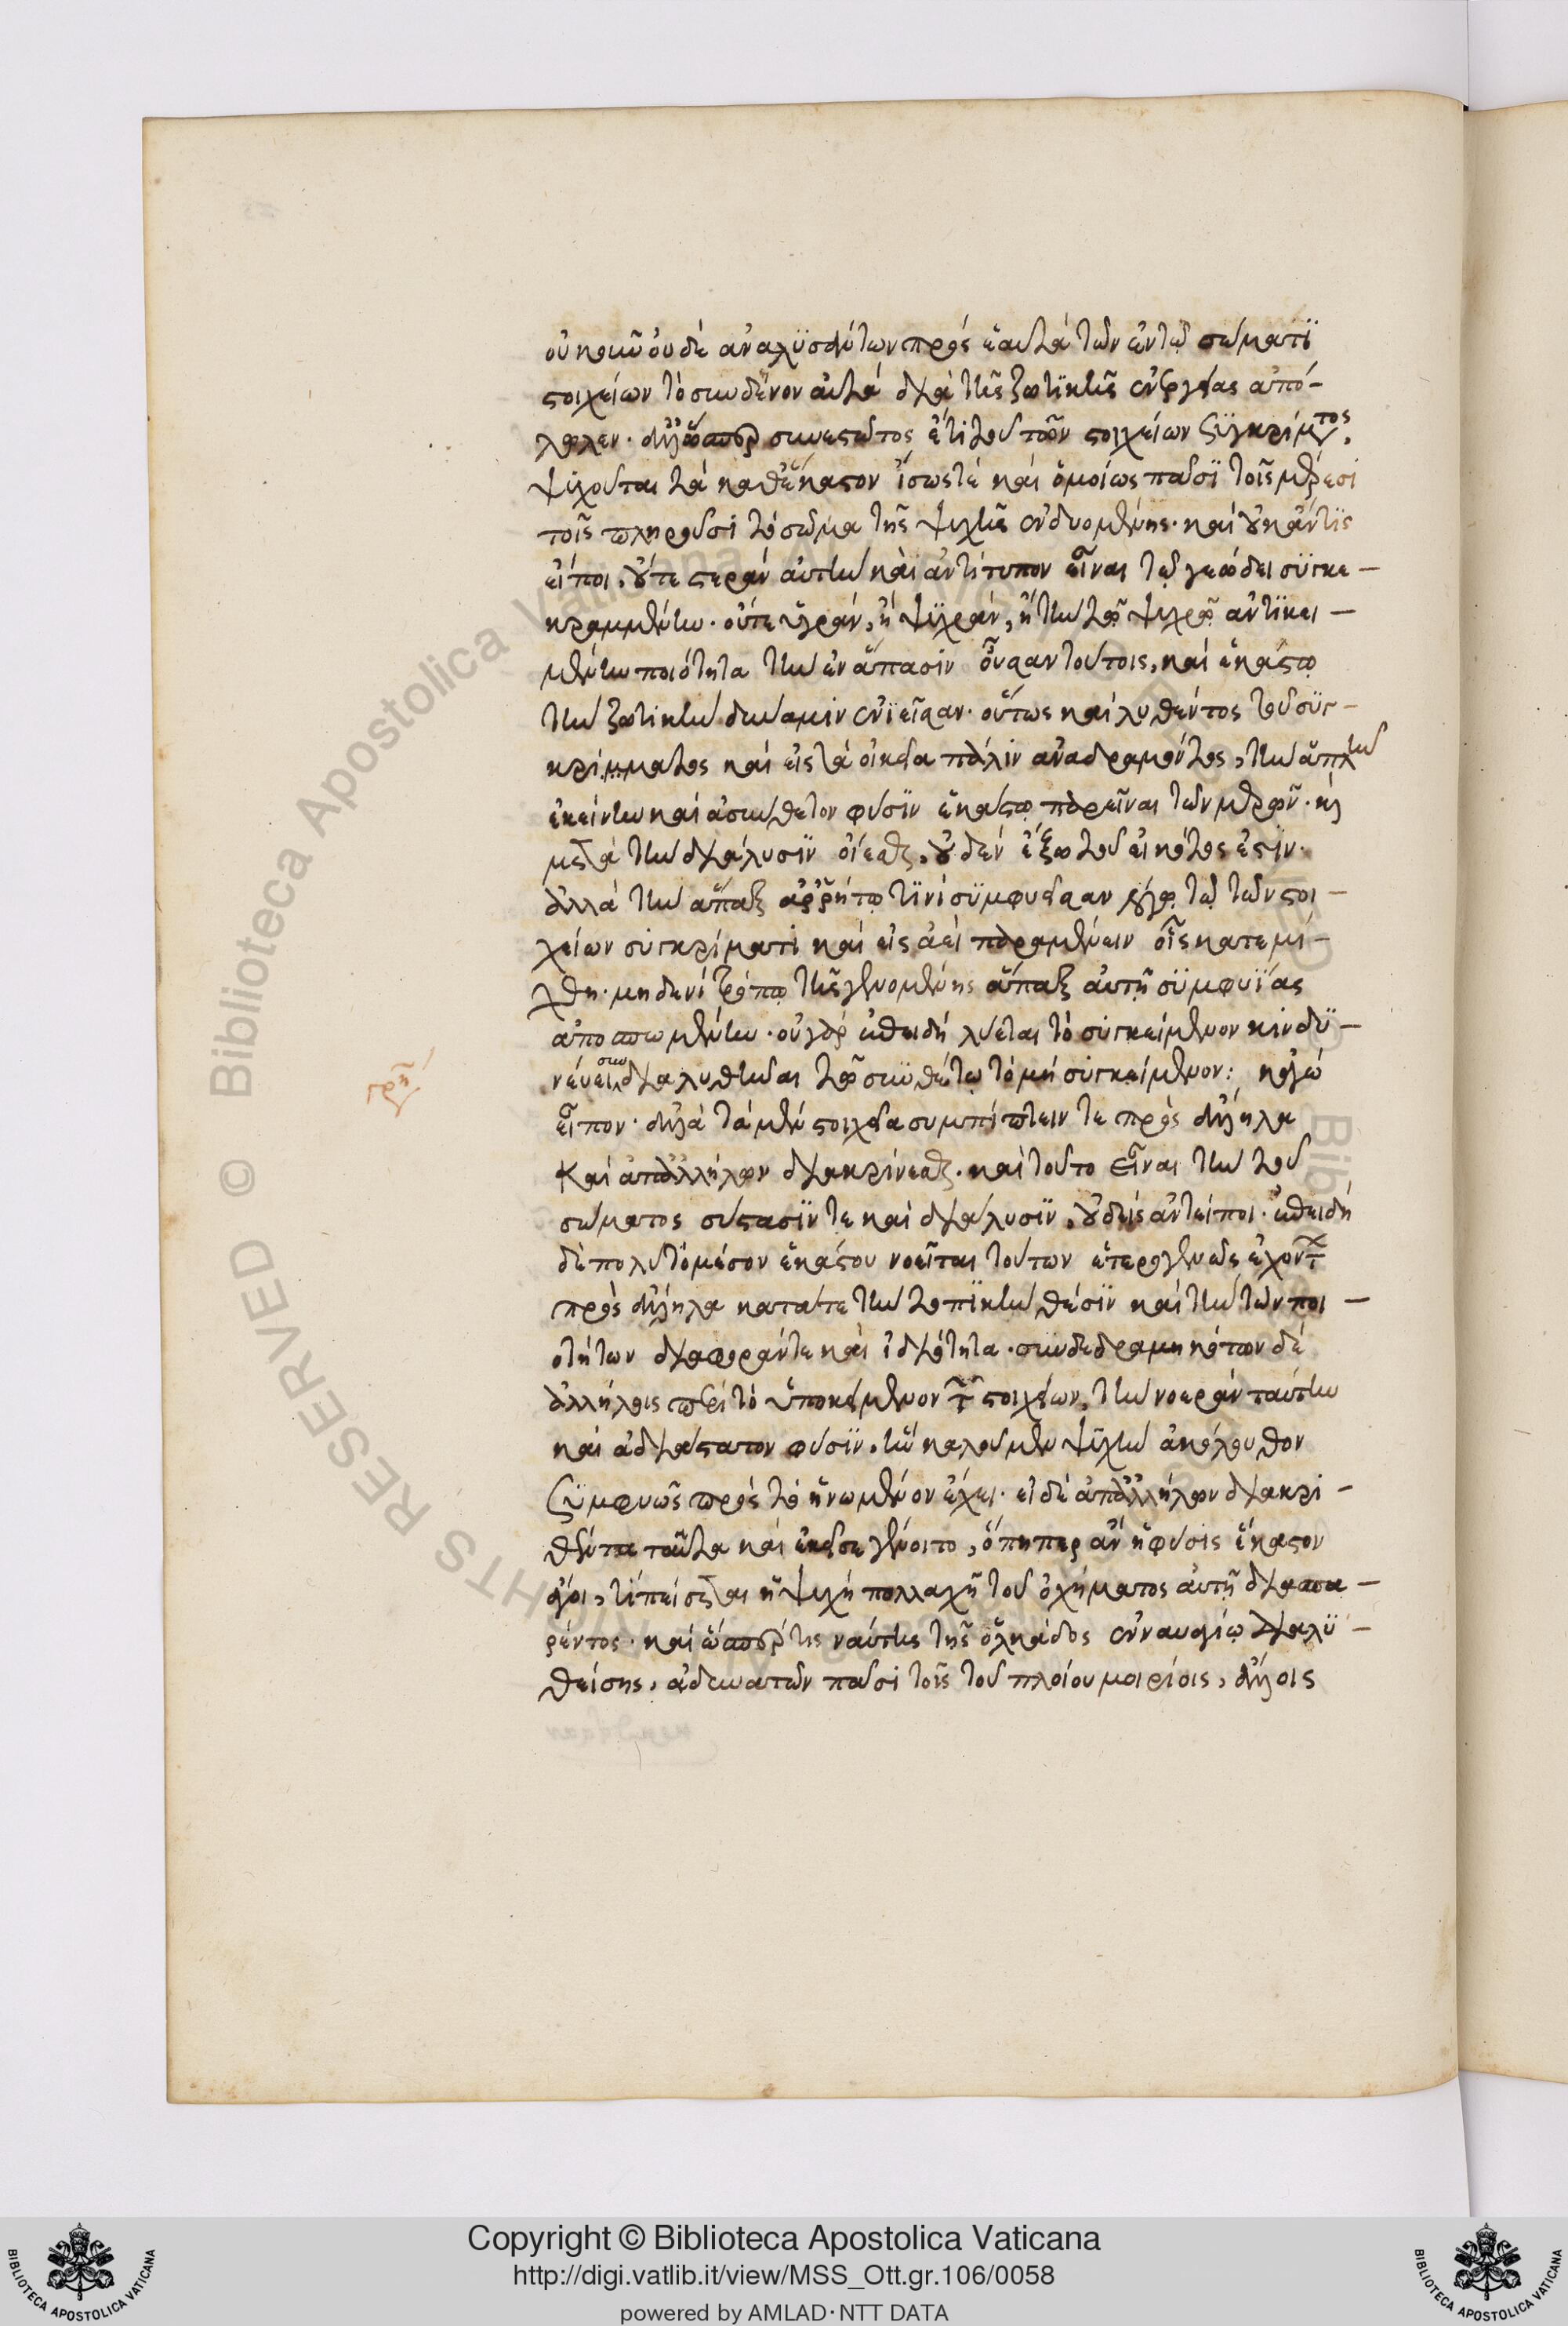 οὐκοῦν οὐδὲ ἀναλυσάντων πρὸς ἑαυτὰ τῶν ἐν τῷ σώματι
στοιχείων τὸ συνδέον αὐτὰ διὰ τῆς ζωτικῆς ἐνεργείας ἀπό-
λωλεν· ἀλλ' ὥσπερ συνεστῶτος ἔτι τοῦ τῶν στοιχείων συγκρίματος,
ψυχοῦται τὰ καθ' ἕκαστον ἴσως τὲ καὶ ὁμοίως πᾶσι τοῖς μέρεσι
τοῖς πληροῦσι τὸ σῶμα τῆς ψυχῆς ἐνδυομένης· καὶ οὐκ ἄν τις
εἴποι, οὔτε στερὰν αὐτὴν καὶ ἀντίτυπον εἶναι τῷ γεώδει συγκε-
κραμμένην· οὔτε ὑγρὰν, ἢ ψυχρὰν, ἢ τὴν τῷ ψυχρῷ ἀντικει-
μένην ποιότητα τὴν ἐν ἅπασιν οὖσαν τούτοις, καὶ ἑκάστῳ
τὴν ζωτικὴν δύναμιν ἐνιεῖσαν· οὕτως καὶ λυθέντος τοῦ συγ-
κρίμματος καὶ εἰς τὰ οἰκεῖα πάλιν ἀναδραμόντος, τὴν ἁπλῆν
ἐκείνην καὶ ἀσύνθετον φύσιν ἑκάστῳ παρεῖναι τῶν μερῶν· καὶ
μετὰ τὴν διάλυσιν οἴεσθαι, οὐδὲν ἔξω τοῦ εἰκότος ἐστίν·
ἀλλὰ τὴν ἅπαξ ἀρρήτῳ τινὶ συμφυεῖσαν λόγῳ τῷ τῶν στοι-
χείων συγκρίματι καὶ εἰς ἀεὶ παραμένειν οἷς κατεμί-
χθη· μηδενὶ τρόπῳ τῆς γενομένης ἅπαξ αὐτῇ συμφυΐας
ἀποσπωμένην· οὐ γὰρ ἐπειδὴ λύεται τὸ συγκείμενον κινδυ-
νεύει συνδιαλυθῆναι τῷ συνθέτῳ τὸ μὴ συγκείμενον: κἀγὼ
εἶπον· ἀλλὰ τὰ μὲν στοιχεῖα συμπίπτειν τε πρὸς ἄλληλα
καὶ ἀπ' ἀλλήλων διακρίνεσθαι· καὶ τοῦτο εἶναι τὴν τοῦ
σώματος σύστασίν τε καὶ διάλυσιν, οὐδεὶς ἀντείποι· ἐπειδὴ
δὲ πολὺ τὸ μέσον ἑκάστου νοεῖται τούτων ἑτερογενῶς ἐχόντων
πρὸς ἄλληλα κατά τε τὴν τοπικὴν θέσιν καὶ τὴν τῶν ποι-
οτήτων διαφοράν τε καὶ ἰδιότητα· συνδεδραμηκότων δὲ
ἀλλήλοις περὶ τὸ ὑποκείμενον τῶν στοιχείων, τὴν νοερὰν ταύτην
καὶ ἀδιάστατον φύσιν, ἣν καλοῦμεν ψυχὴν ἀκόλουθον
συμφυῶς πρὸς τὸ ἡνωμένον ἔχει· εἰ δὲ ἀπ' ἀλλήλων διακρι-
θέντα ταῦτα καὶ ἐκεῖσε γένοιτο, ὅπηπερ ἂν ἡ φύσις ἕκαστον
ἄγοι, τί πείσεται ἡ ψυχὴ πολλαχῇ τοῦ ὀχήματος αὐτῇ διασπα-
ρέντος· καὶ ὥσπερ τις ναύτης τῆς ὁλκάδος ἐν ναυαγίῳ διαλυ-
θείσης, ἀδυνατῶν πᾶσι τοῖς τοῦ πλοίου μορίοις, ἄλλοις
Copyright © Biblioteca Apostolica Vaticana
http://digi.vatlib.it/view/MSS_Ott.gr.106/0058
powered by AMLAD·NTT DATA